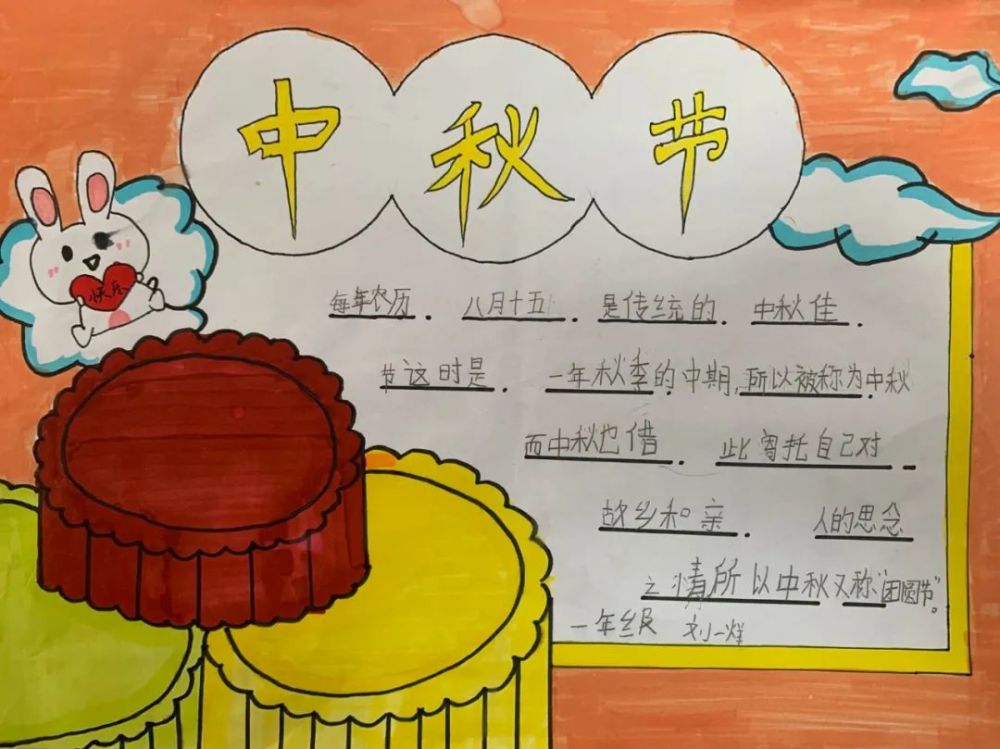 中秋节
快乐
每年农历. 八月十五. 是传统的. 中秋佳.
节这时是. 一年秋季的.中期,所以被称为.中秋
而中秋也借. 此寄托自己对.
故乡和亲. 人的思念
之情所以中秋又称“团圆节”。
一年级 刘一烊